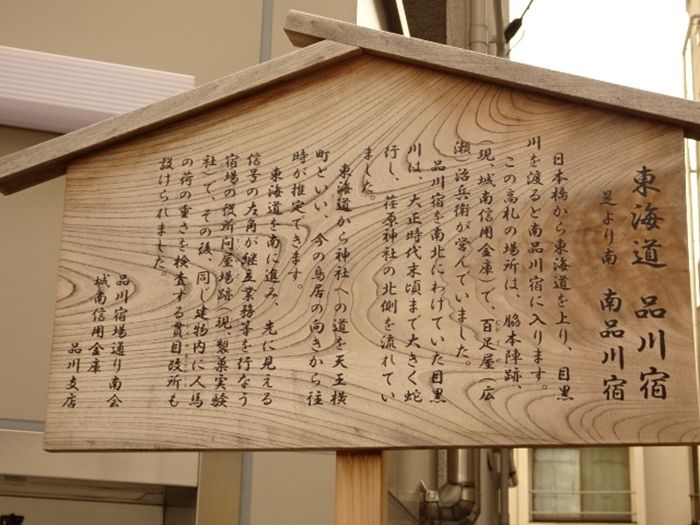 東海道 品川宿
是より南 南品川宿
日本橋から東海道を上り、目黒
川を渡ると南品川宿に入ります。
この高札の場所は、脇本陣跡、
（現、城南信用金庫）で、百足屋（広
瀬）治兵衛が営んでいました。
品川宿を南北にわけていた目黒
川は、大正時代末頃まで大きく蛇
行し、荏原神社の北側を流れてい
ました。
東海道から神社への道を天王横
町といい、今の鳥居の向きから往
時が推定できます。
東海道を南に進み、先に見える
信号の左角が継立業務等を行なう
宿場の役所問屋場跡（現、製薬実験
社）で、その後、同じ建物内に人馬
の荷の重さを検査する貫目改所も
設けられました。
品川宿場通り南会
城南信用金庫
品川支店